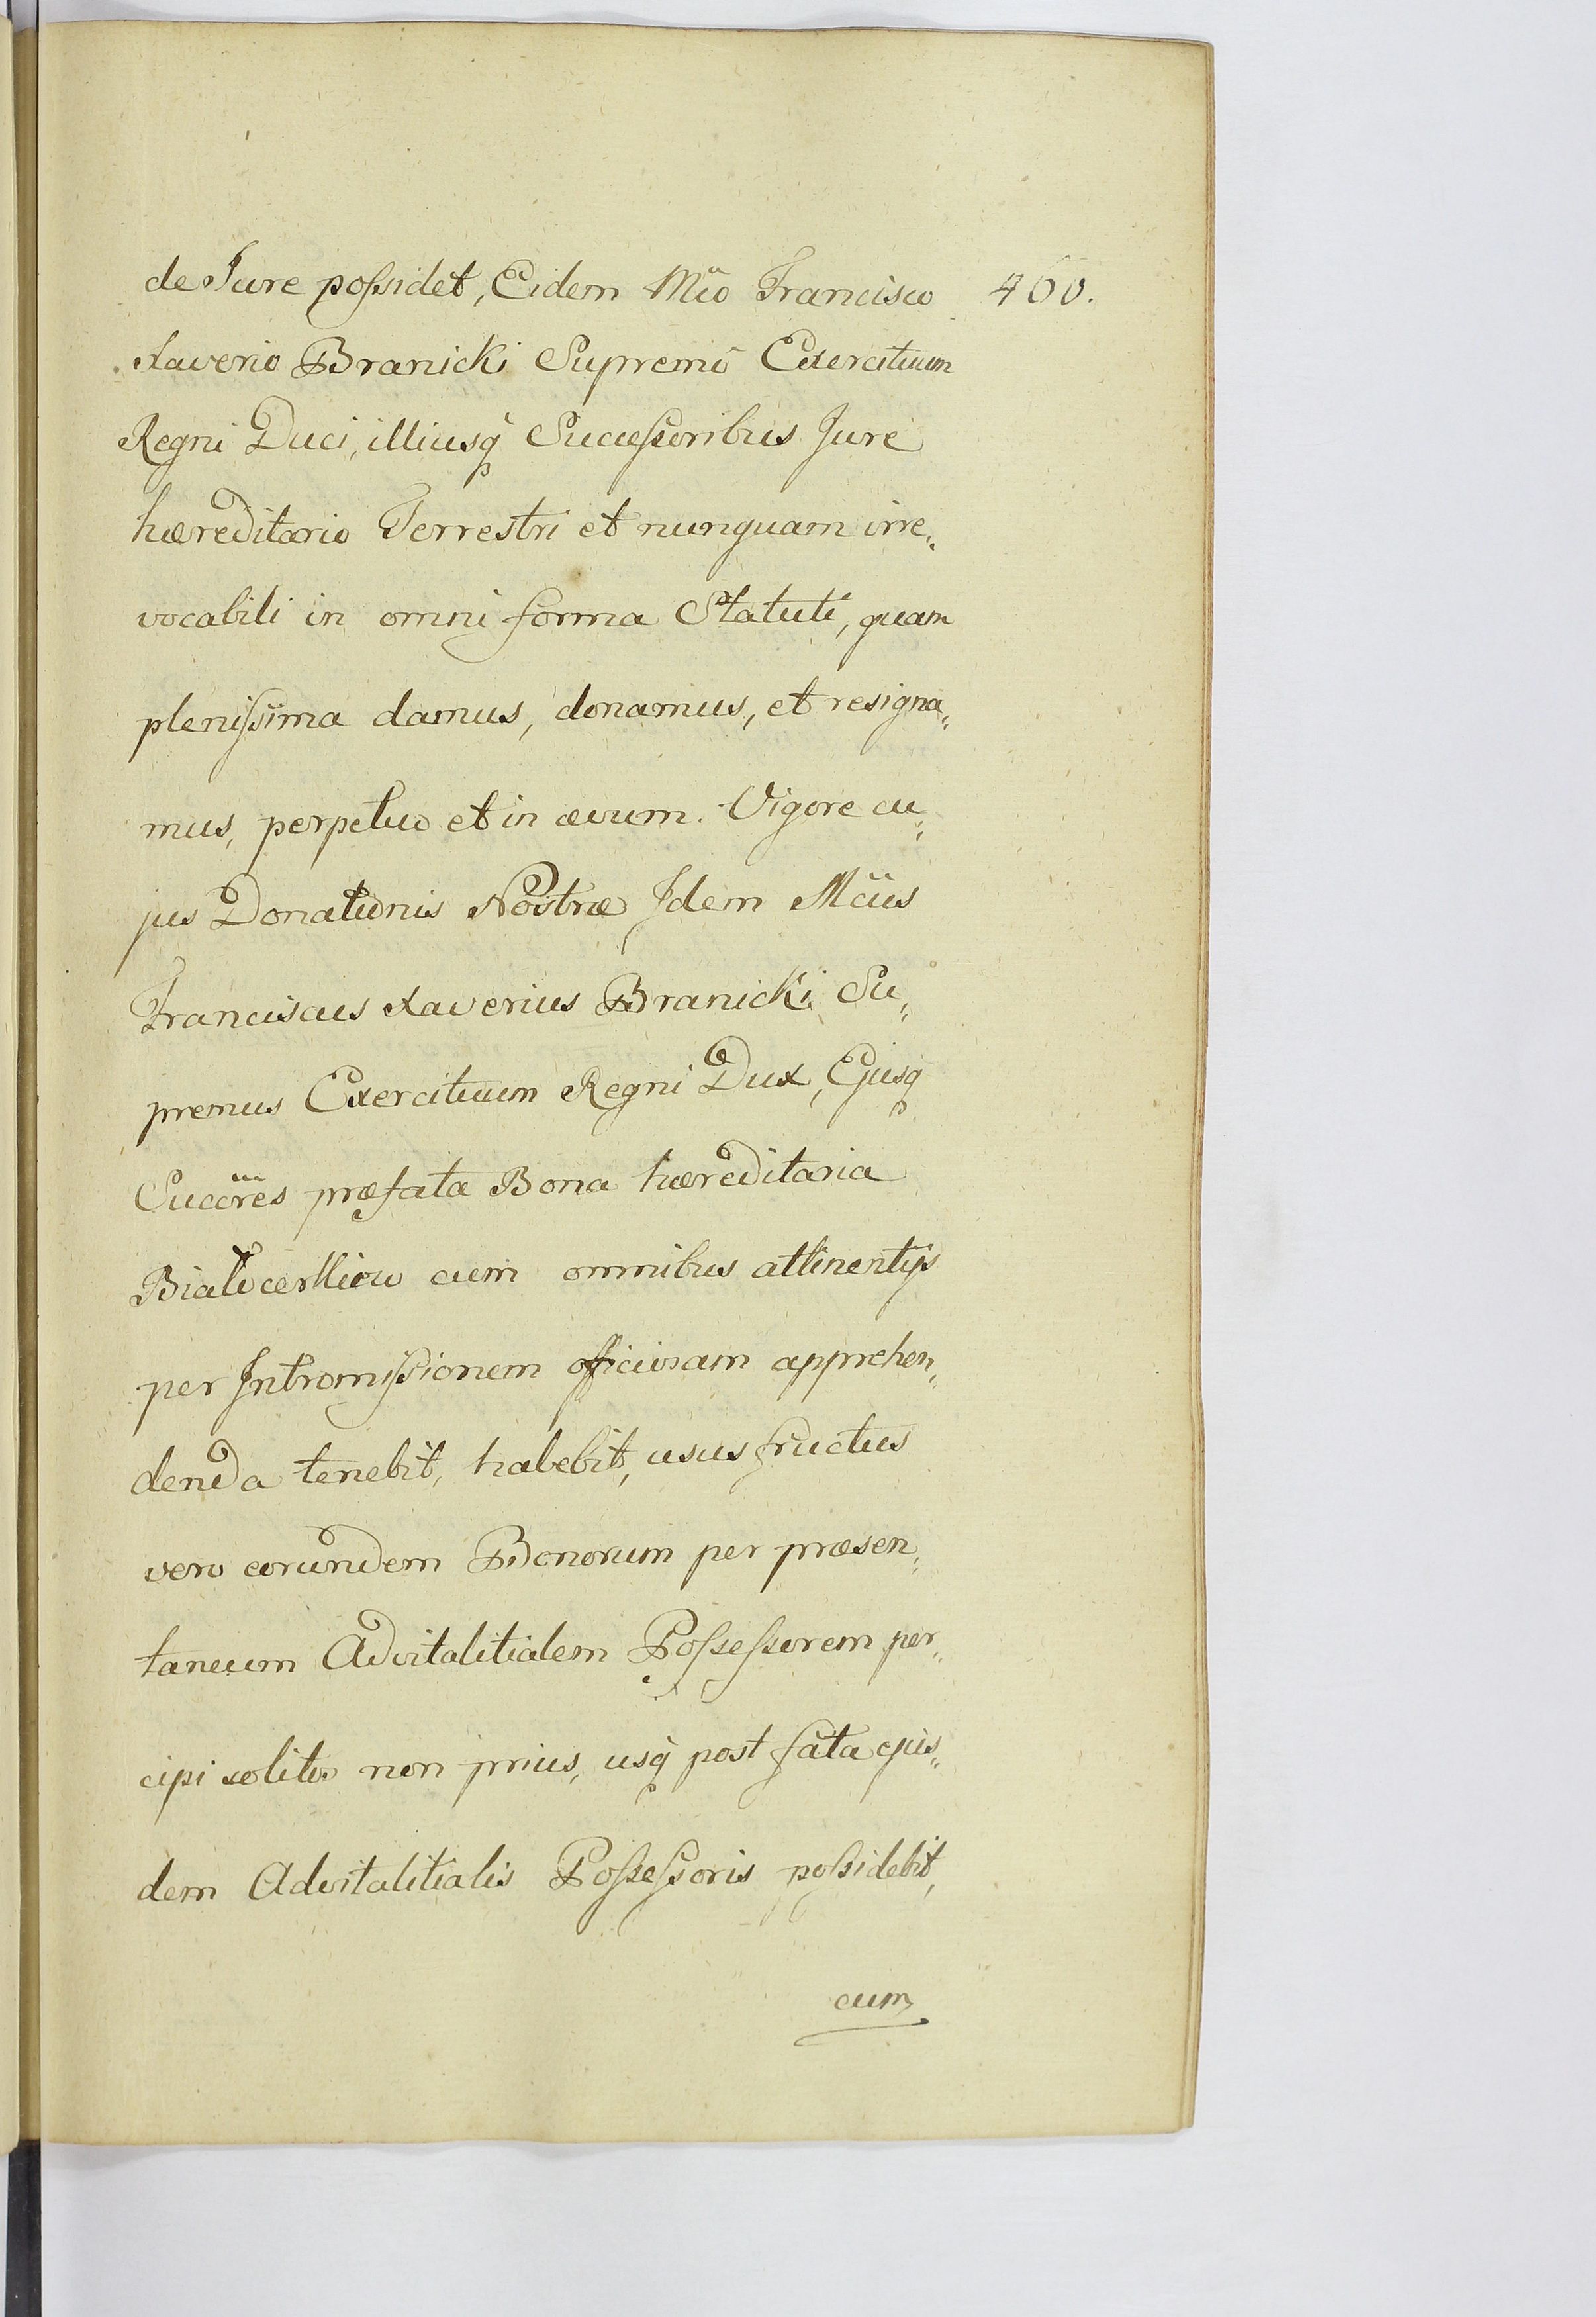 de Jure possidet, Eidem Mco Francisco 460.
Xaverio Branicki Supremo Exercituum
Regni Duci, illiusq Successoribus Jure
hæreditario Terrestri et nunquam irre„
vocabili in omni forma Statuti, quam
plenissima damus, donamus, et resigna„
mus, perpetuo et in ævum. Vigore cu„
jus Donationis Nostræ Idem Mcus
Franciscus Xaverius Branicki Su„
premus Exercituum Regni Dux, Ejusq
Succores præfata Bona hæreditaria
Białocerkiew cum omnibus attinentijs
per Intromissionem officiosam apprehen„
denda tenebit, habebit, usus fructus
vero eorundem Bonorum per præsen„
taneum Advitalitialem Possessorem per„
cipi solitos non prius, usq post fata ejus„
dem Advitalitialis Possessoris possidebit,
cum